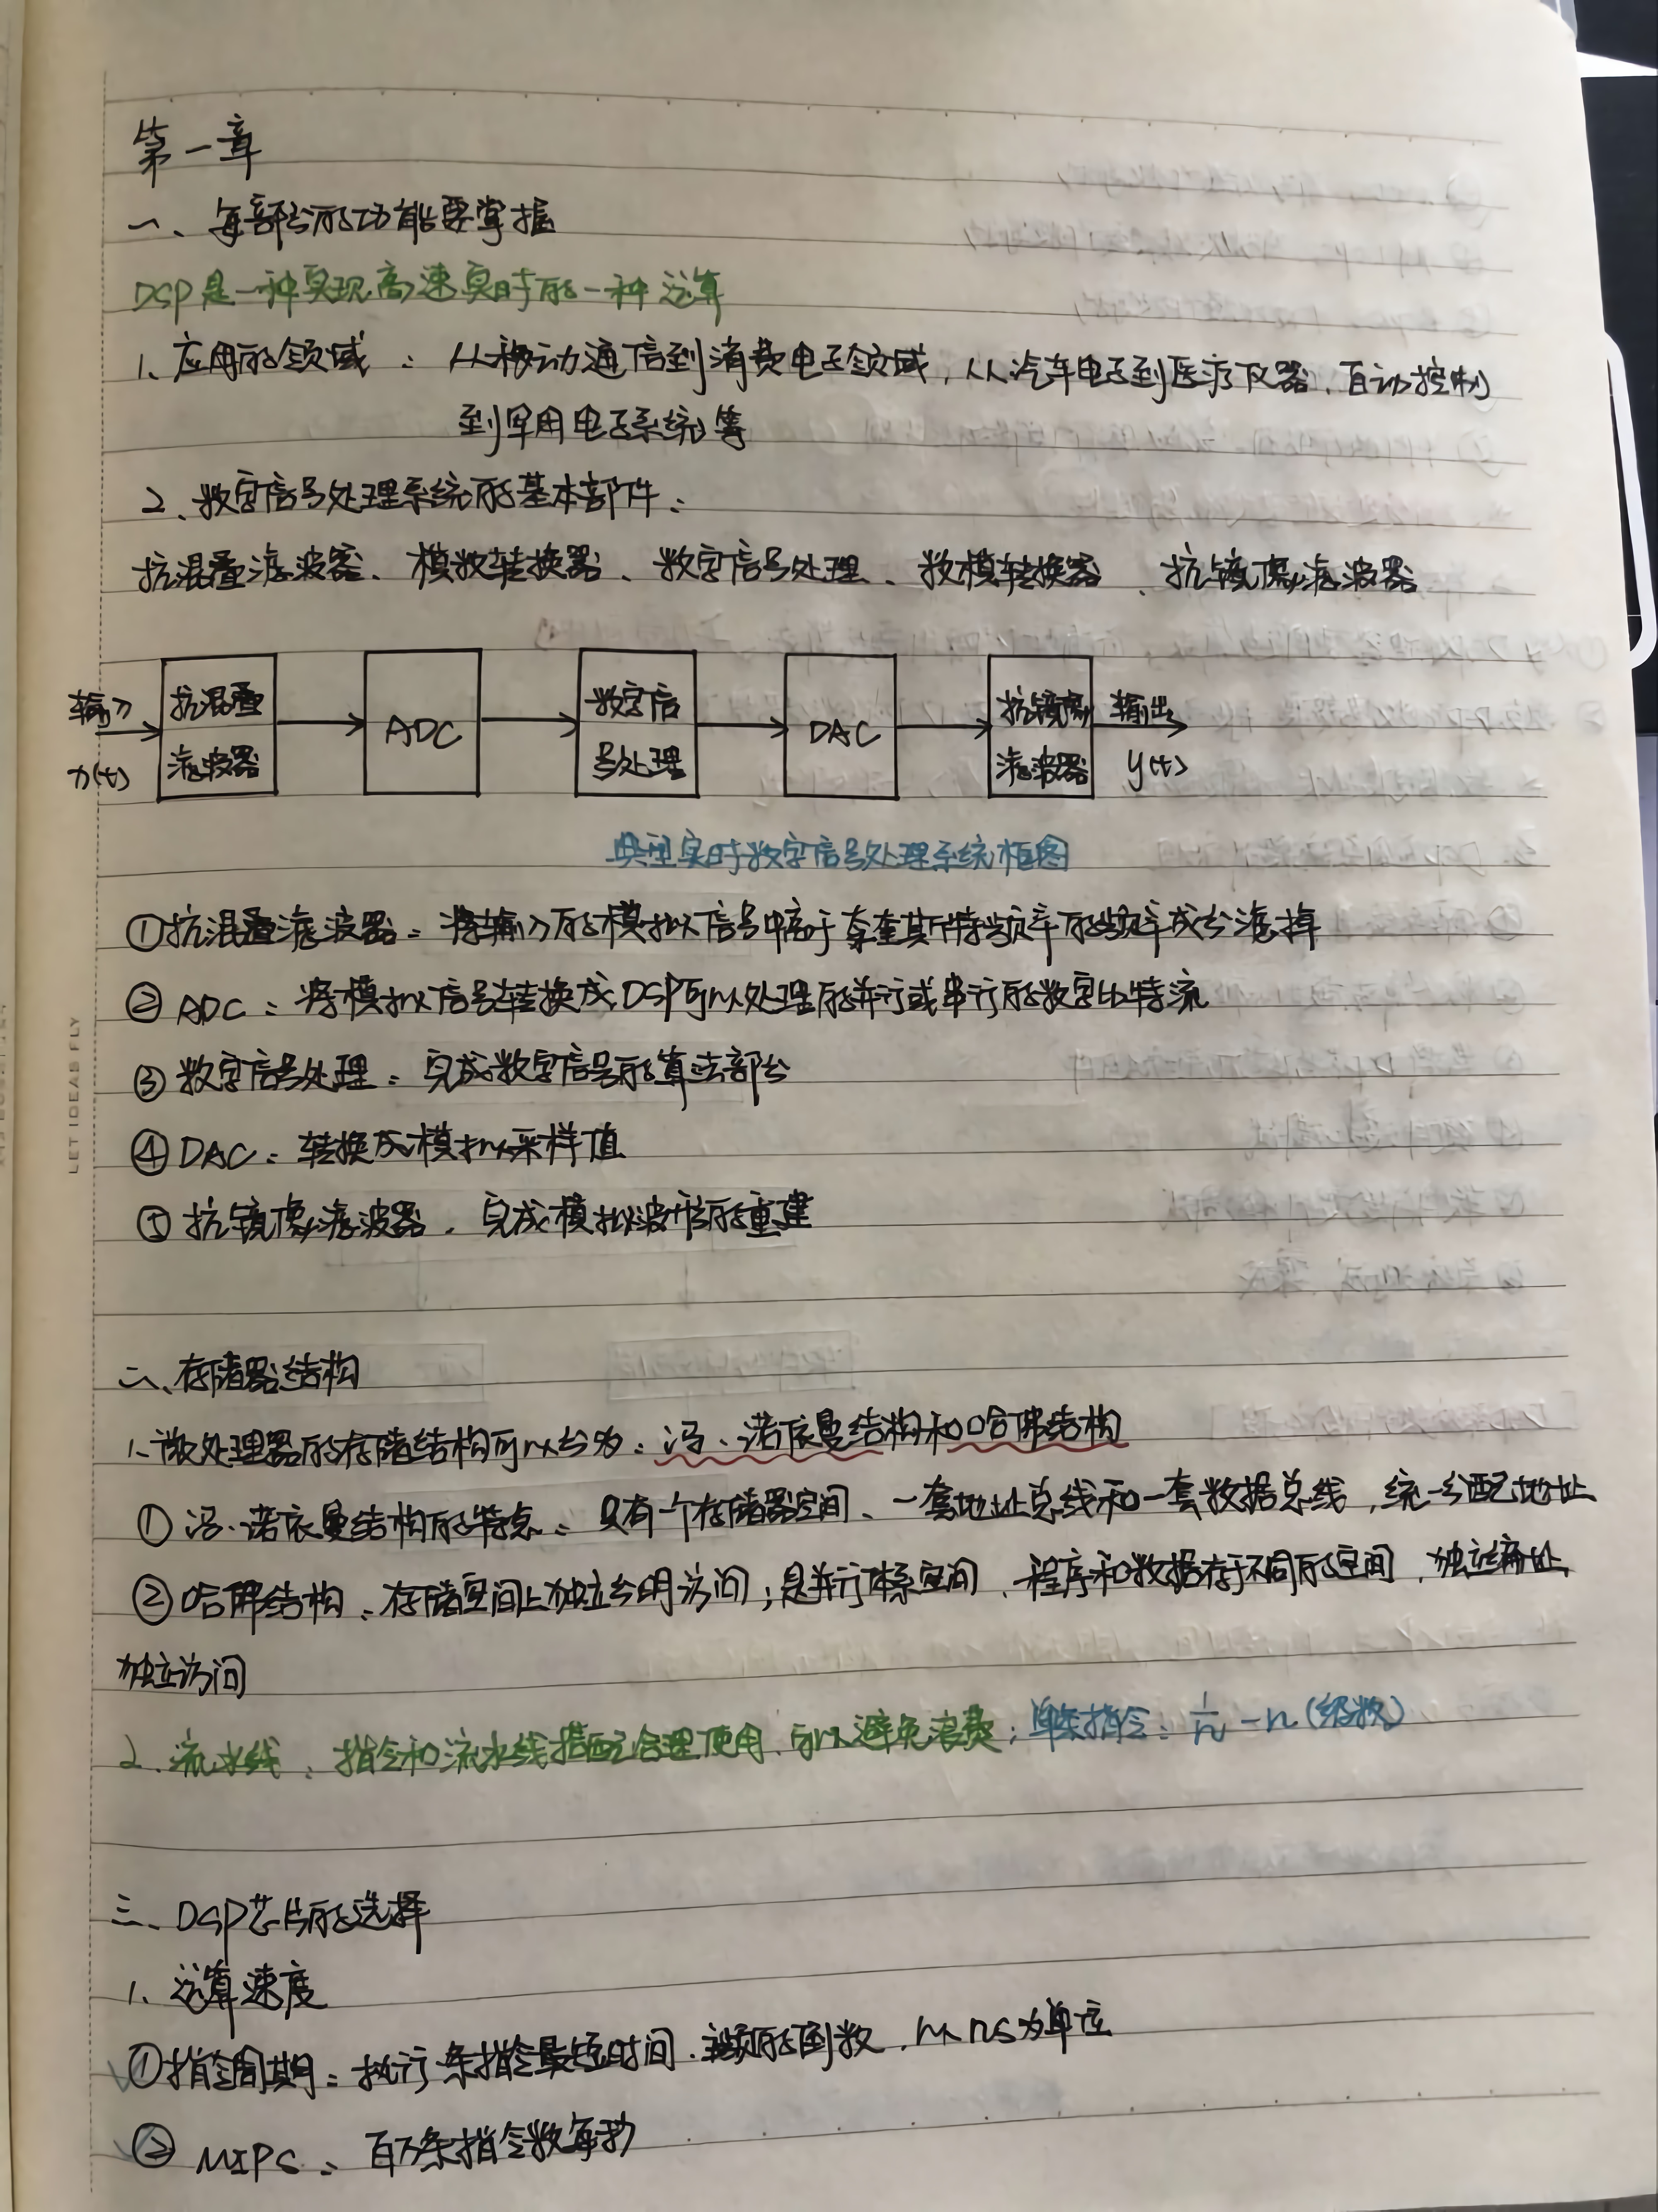 第一章
一、每部分的功能要掌握
DSP是一种实现高速实时的一种运算
1、应用的领域：从移动通信到消费电子领域，从汽车电子到医疗仪器、自动控制
到军用电子系统等
2、数字信号处理系统的基本部件：
抗混叠滤波器、模数转换器、数字信号处理、数模转换器、抗镜像滤波器
输入 x(t)
抗混叠滤波器
ADC
数字信号处理
DAC
抗镜像滤波器
输出 y(t)
典型实时数字信号处理系统框图
①抗混叠滤波器：将输入的模拟信号中高于奈奎斯特频率的频率成分滤掉
②ADC：将模拟信号转换成DSP可以处理的并行或串行的数字比特流
③数字信号处理：完成数字信号的算法部分
④DAC：转换成模拟采样值
⑤抗镜像滤波器、完成模拟波形的重建
LET IDEAS FLY
二、存储器结构
1、微处理器的存储结构可以分为：冯·诺依曼结构和哈佛结构
①冯·诺依曼结构的特点：只有一个存储器空间、一套地址总线和一套数据总线，统一分配地址
②哈佛结构：存储空间上独立分明访问；是并行体系空间、程序和数据存于不同的空间，独立编址
独立访问
2、流水线：指令和流水线搭配合理使用、可以避免浪费；单条指令：1/n - n（级数）
三、DSP芯片的选择
1、运算速度
①指令周期：执行一条指令最短时间、主频的倒数，以ns为单位
②MIPS：百万条指令数每秒